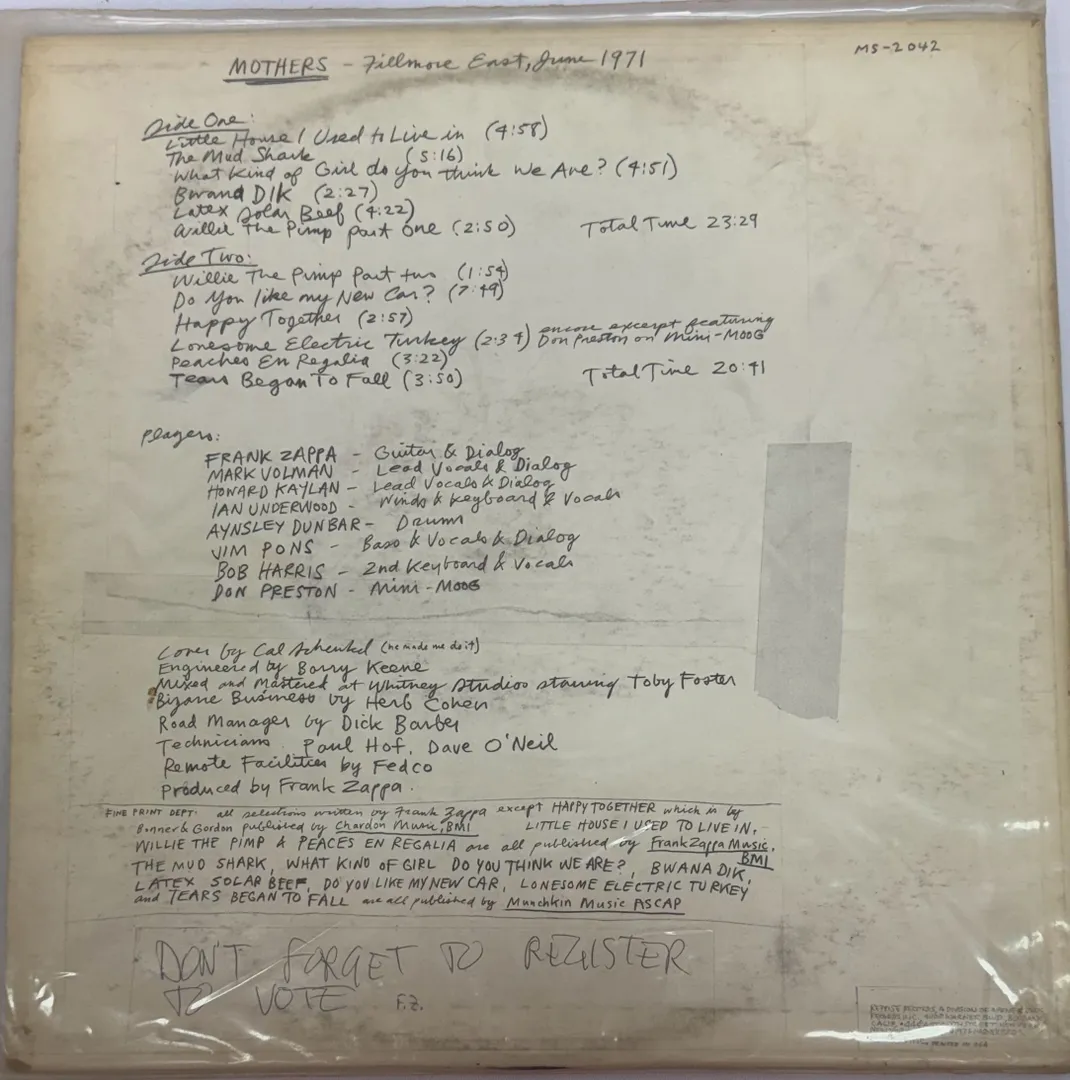 MOTHERS - Fillmore East, June 1971
MS-2042
Side One:
Little House I Used to Live in (4:58)
The Mud Shark (5:16)
What Kind of Girl do you think We Are? (4:51)
Bwana DIK (2:27)
Latex Solar Beef (4:22)
Willie The Pimp part One (2:50) Total Time 23:29
Side Two:
Willie The Pimp Part two (1:54)
Do You like my New Car? (7:49)
Happy Together (2:57)
Lonesome Electric Turkey (2:34) encore excerpt featuring
Don Preston on Mini-MOOG
Peaches En Regalia (3:22)
Tears Began To Fall (3:50) Total Time 20:41
Players:
FRANK ZAPPA - Guitar & Dialog
MARK VOLMAN - Lead Vocals & Dialog
HOWARD KAYLAN - Lead Vocals & Dialog
IAN UNDERWOOD - Winds & Keyboard & Vocals
AYNSLEY DUNBAR - Drums
JIM PONS - Bass & Vocals & Dialog
BOB HARRIS - 2nd Keyboard & Vocals
DON PRESTON - Mini-MOOG
Cover by Cal Schenkel (he made me do it)
Engineered by Barry Keene
Mixed and Mastered at Whitney Studios starring Toby Foster
Bizarre Business by Herb Cohen
Road Manager by Dick Barber
Technicians Paul Hof, Dave O'Neil
Remote Facilities by Fedco
Produced by Frank Zappa.
FINE PRINT DEPT: all selections written by Frank Zappa except HAPPY TOGETHER which is by
Bonner & Gordon published by Chardon Music, BMI LITTLE HOUSE I USED TO LIVE IN,
WILLIE THE PIMP & PEACES EN REGALIA are all published by Frank Zappa Music,
BMI
THE MUD SHARK, WHAT KIND OF GIRL DO YOU THINK WE ARE?, BWANA DIK,
LATEX SOLAR BEEF, DO YOU LIKE MY NEW CAR, LONESOME ELECTRIC TURKEY
and TEARS BEGAN TO FALL are all published by Munchkin Music ASCAP
DON'T FORGET TO REGISTER
TO VOTE F.Z.
REPRISE RECORDS, A DIVISION OF
CALIF.
PRINTED IN USA